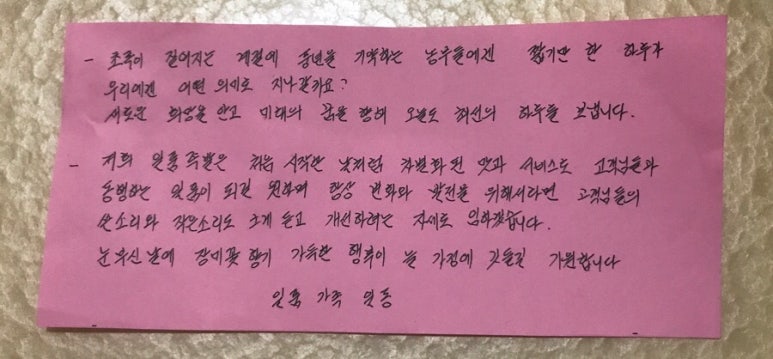 - 초록이 짙어지는 계절에 풍년을 기약하는 농부들에겐 짧기만 한 하루가
우리에겐 어떤 의미로 지나갈까요?
새로운 희망을 안고 미래의 꿈을 향해 오늘도 최선의 하루를 보냅니다.
- 저희 일품 족발은 처음 시작한 날처럼 차별화 된 맛과 서비스로 고객님들과
동행하는 일품이 되길 원하며 항상 변화와 발전을 위해서라면 고객님들의
쓴소리와 작은소리도 크게 듣고 개선하려는 자세로 임하겠습니다.
눈부신 날에 장미꽃 향기 가득한 행복이 늘 가정에 깃들길 기원합니다
일품 가족 일동